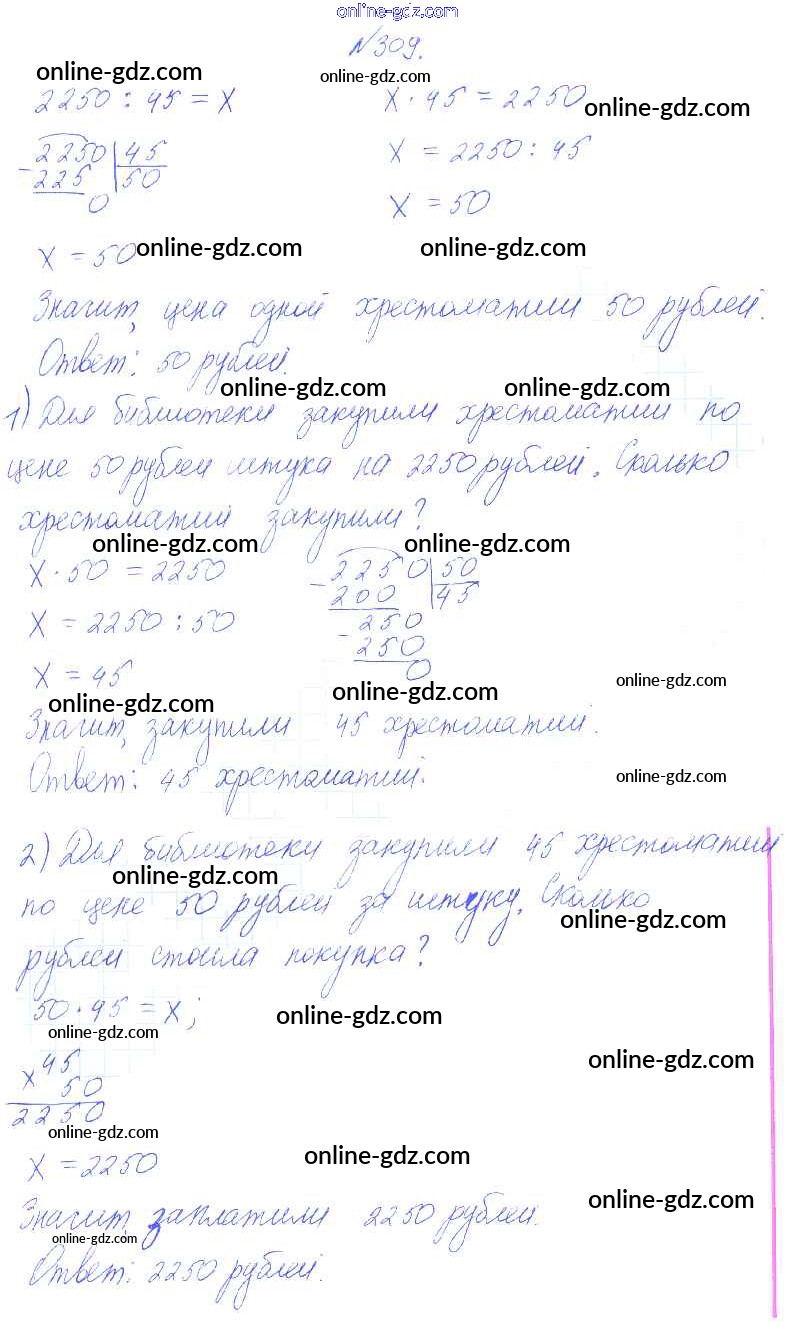 online-gdz.com
№309.
online-gdz.com online-gdz.com
2250 : 45 = x x · 45 = 2250 online-gdz.com
2250 45 x = 2250 : 45
- 225 50
0 x = 50
x = 50 online-gdz.com online-gdz.com
Значит, цена одной хрестоматии 50 рублей.
Ответ: 50 рублей.
online-gdz.com online-gdz.com
1) Для библиотеки закупили хрестоматии по
цене 50 рублей штука на 2250 рублей. Сколько
хрестоматий закупили?
online-gdz.com online-gdz.com
x · 50 = 2250 - 2250 50
200 45
x = 2250 : 50 250
- 250
x = 45 0
online-gdz.com
online-gdz.com online-gdz.com
Значит, закупили 45 хрестоматий.
Ответ: 45 хрестоматий. online-gdz.com
2) Для библиотеки закупили 45 хрестоматий
online-gdz.com
по цене 50 рублей за штуку. Сколько
online-gdz.com
рублей стоила покупка?
50 · 45 = x; online-gdz.com
online-gdz.com
x 45 online-gdz.com
50
2250
online-gdz.com
x = 2250 online-gdz.com
online-gdz.com
Значит, заплатили 2250 рублей.
online-gdz.com
Ответ: 2250 рублей.